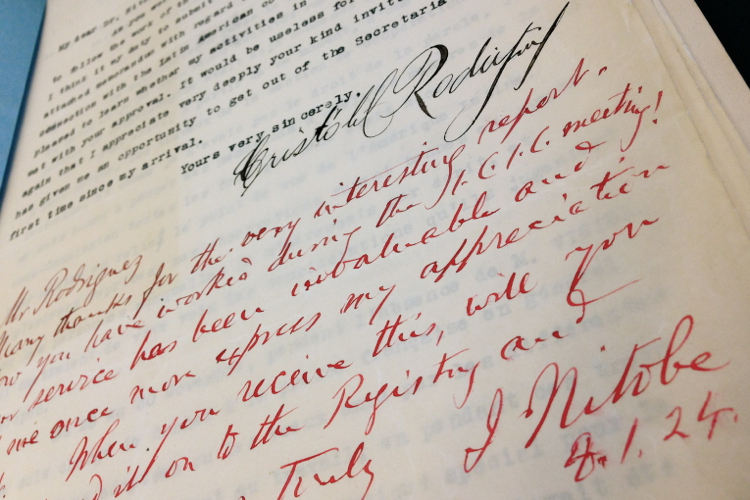 My dear Dr. Nito
as you
to follow the work of the
I think it my duty to submit
attached memorandum with regard
connection with the Latin American co
pleased to learn whether my activities in
met with your approval. It would be useless for
again that I appreciate very deeply your kind invit
has given me an opportunity to get out of the Secretaria
first time since my arrival.
Yours very sincerely,
Cristóbal Rodriguez
Mr Rodriguez
Many thanks for the very interesting report.
How you have worked during the I.C.I.C. meeting!
r service has been invaluable and I
me once more express my appreciation
When you receive this, will you
d it on to the Registry and
Truly
I Nitobe
8.1.24.